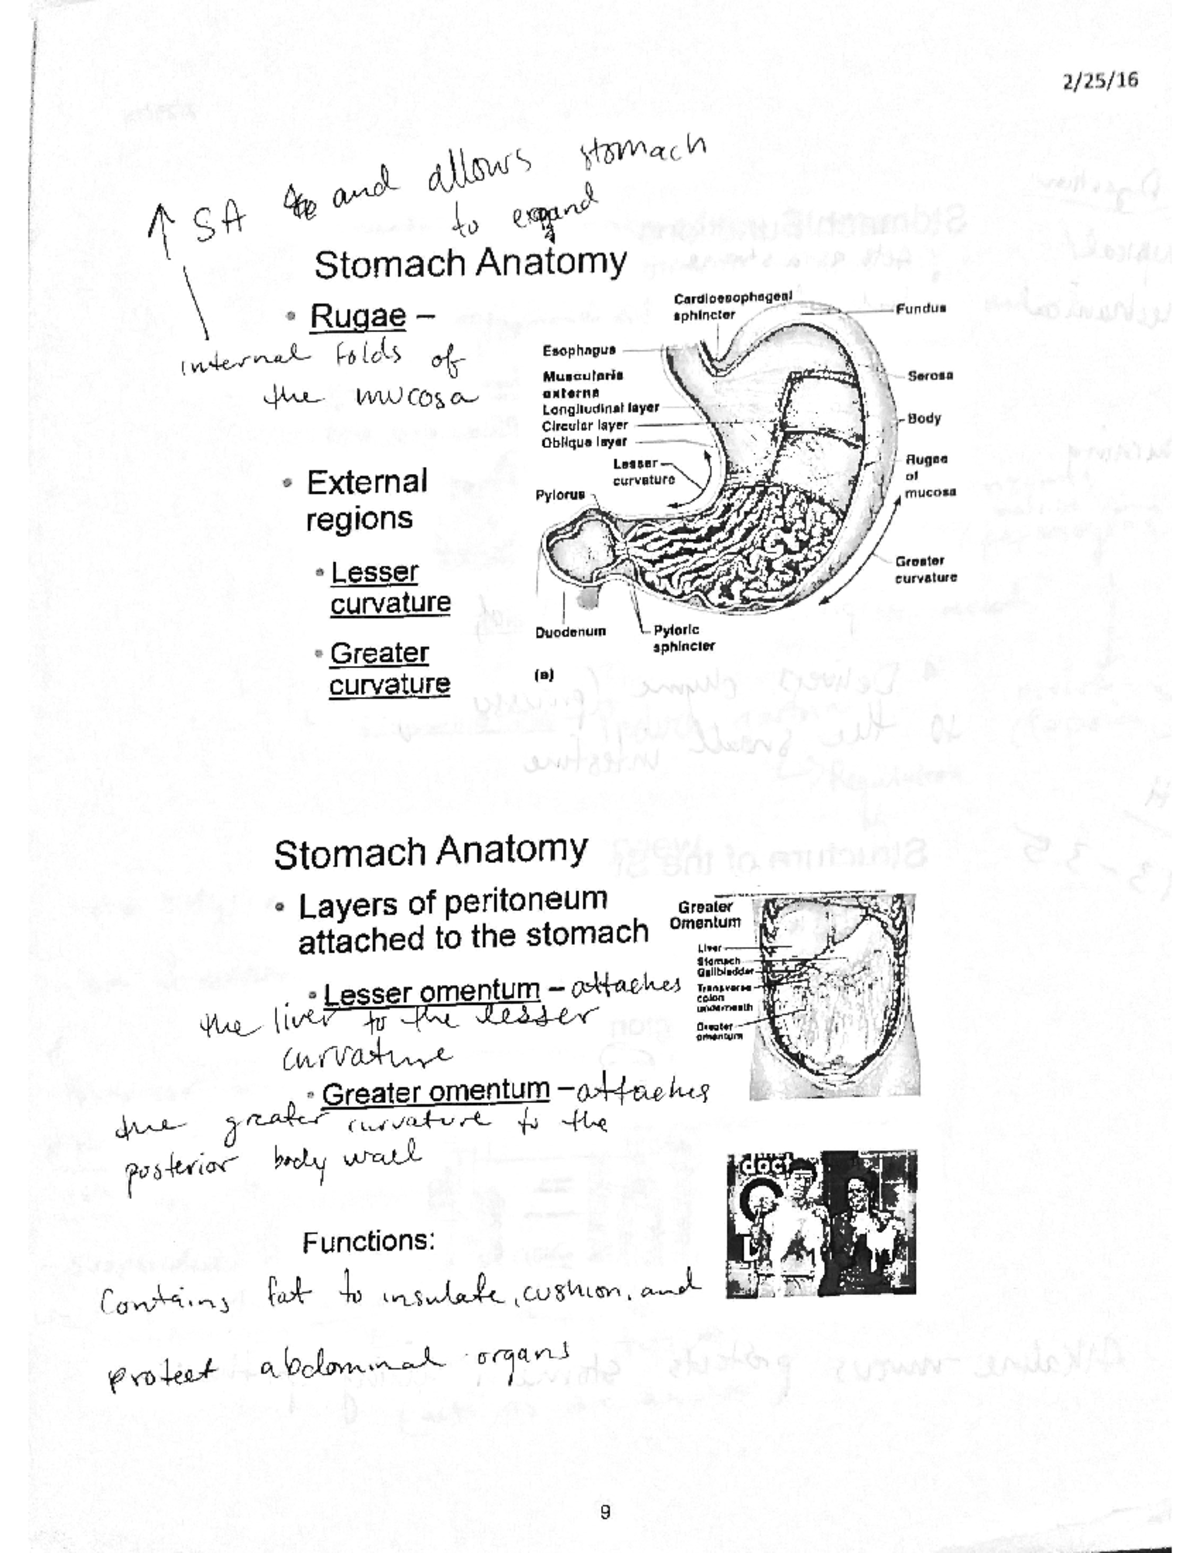 2/25/16
↑ SA and allows stomach
to expand
Stomach Anatomy
• Rugae –
internal folds of
the mucosa
• External
regions
• Lesser
curvature
• Greater
curvature
Cardioesophageal
sphincter
Fundus
Esophagus
Muscularis
externa
Longitudinal layer
Circular layer
Oblique layer
Serosa
Body
Lesser
curvature
Rugae
of
mucosa
Pylorus
Greater
curvature
Duodenum
Pyloric
sphincter
(a)
Stomach Anatomy
• Layers of peritoneum
attached to the stomach
• Lesser omentum – attaches
the liver to the lesser
curvature
• Greater omentum – attaches
the greater curvature to the
posterior body wall
Greater
Omentum
Liver
Stomach
Gallbladder
Transverse
colon
underneath
Greater
omentum
doct
Functions:
Contains fat to insulate, cushion, and
protect abdominal organs
9